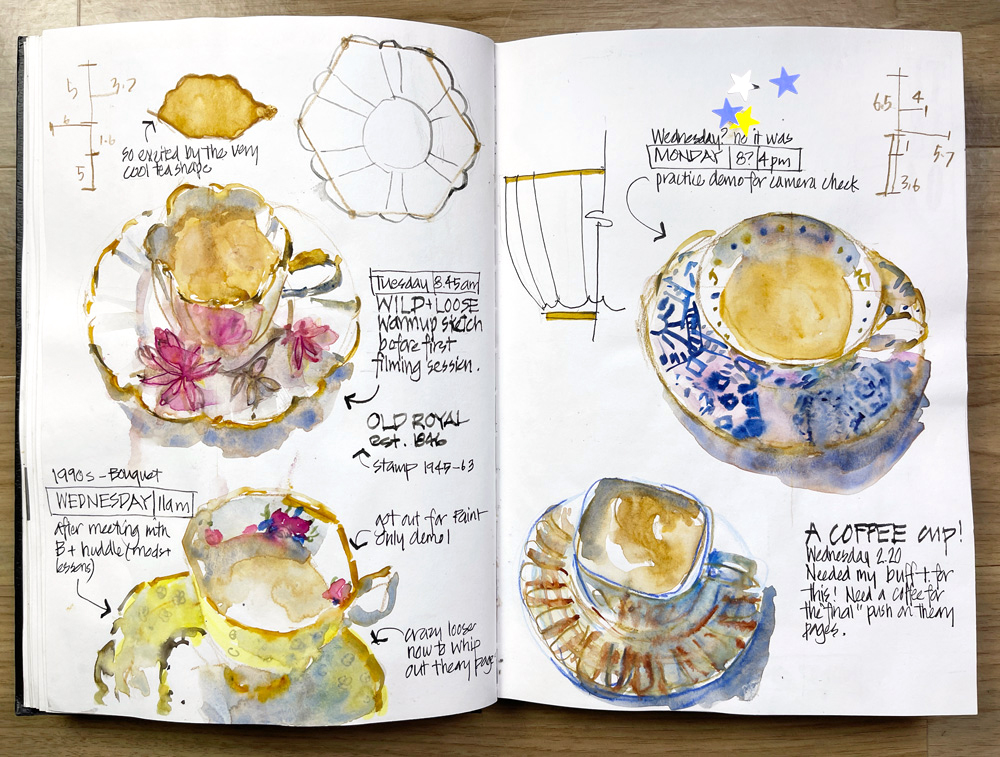 5
3.7
6
1.6
5
so excited by the very
cool tea shape
Tuesday 8.45am
WILD + LOOSE
warmup sketch
before first
filming session.
OLD ROYAL
est. 1846
stamp 1945-63
1990s - Bouquet
WEDNESDAY 11am
After meeting with
B + huddle (mods +
lessons)
got out for Paint
Only demo!
crazy looser
now to whip
out theory page
6.5
4
1
1
5.7
3.6
Wednesday? no it was
MONDAY 8? 4pm
practice demo for camera check
A COFFEE CUP!
Wednesday 2.20
Needed my buff t. for
this! Need a coffee for
the "final" push on theory
pages.